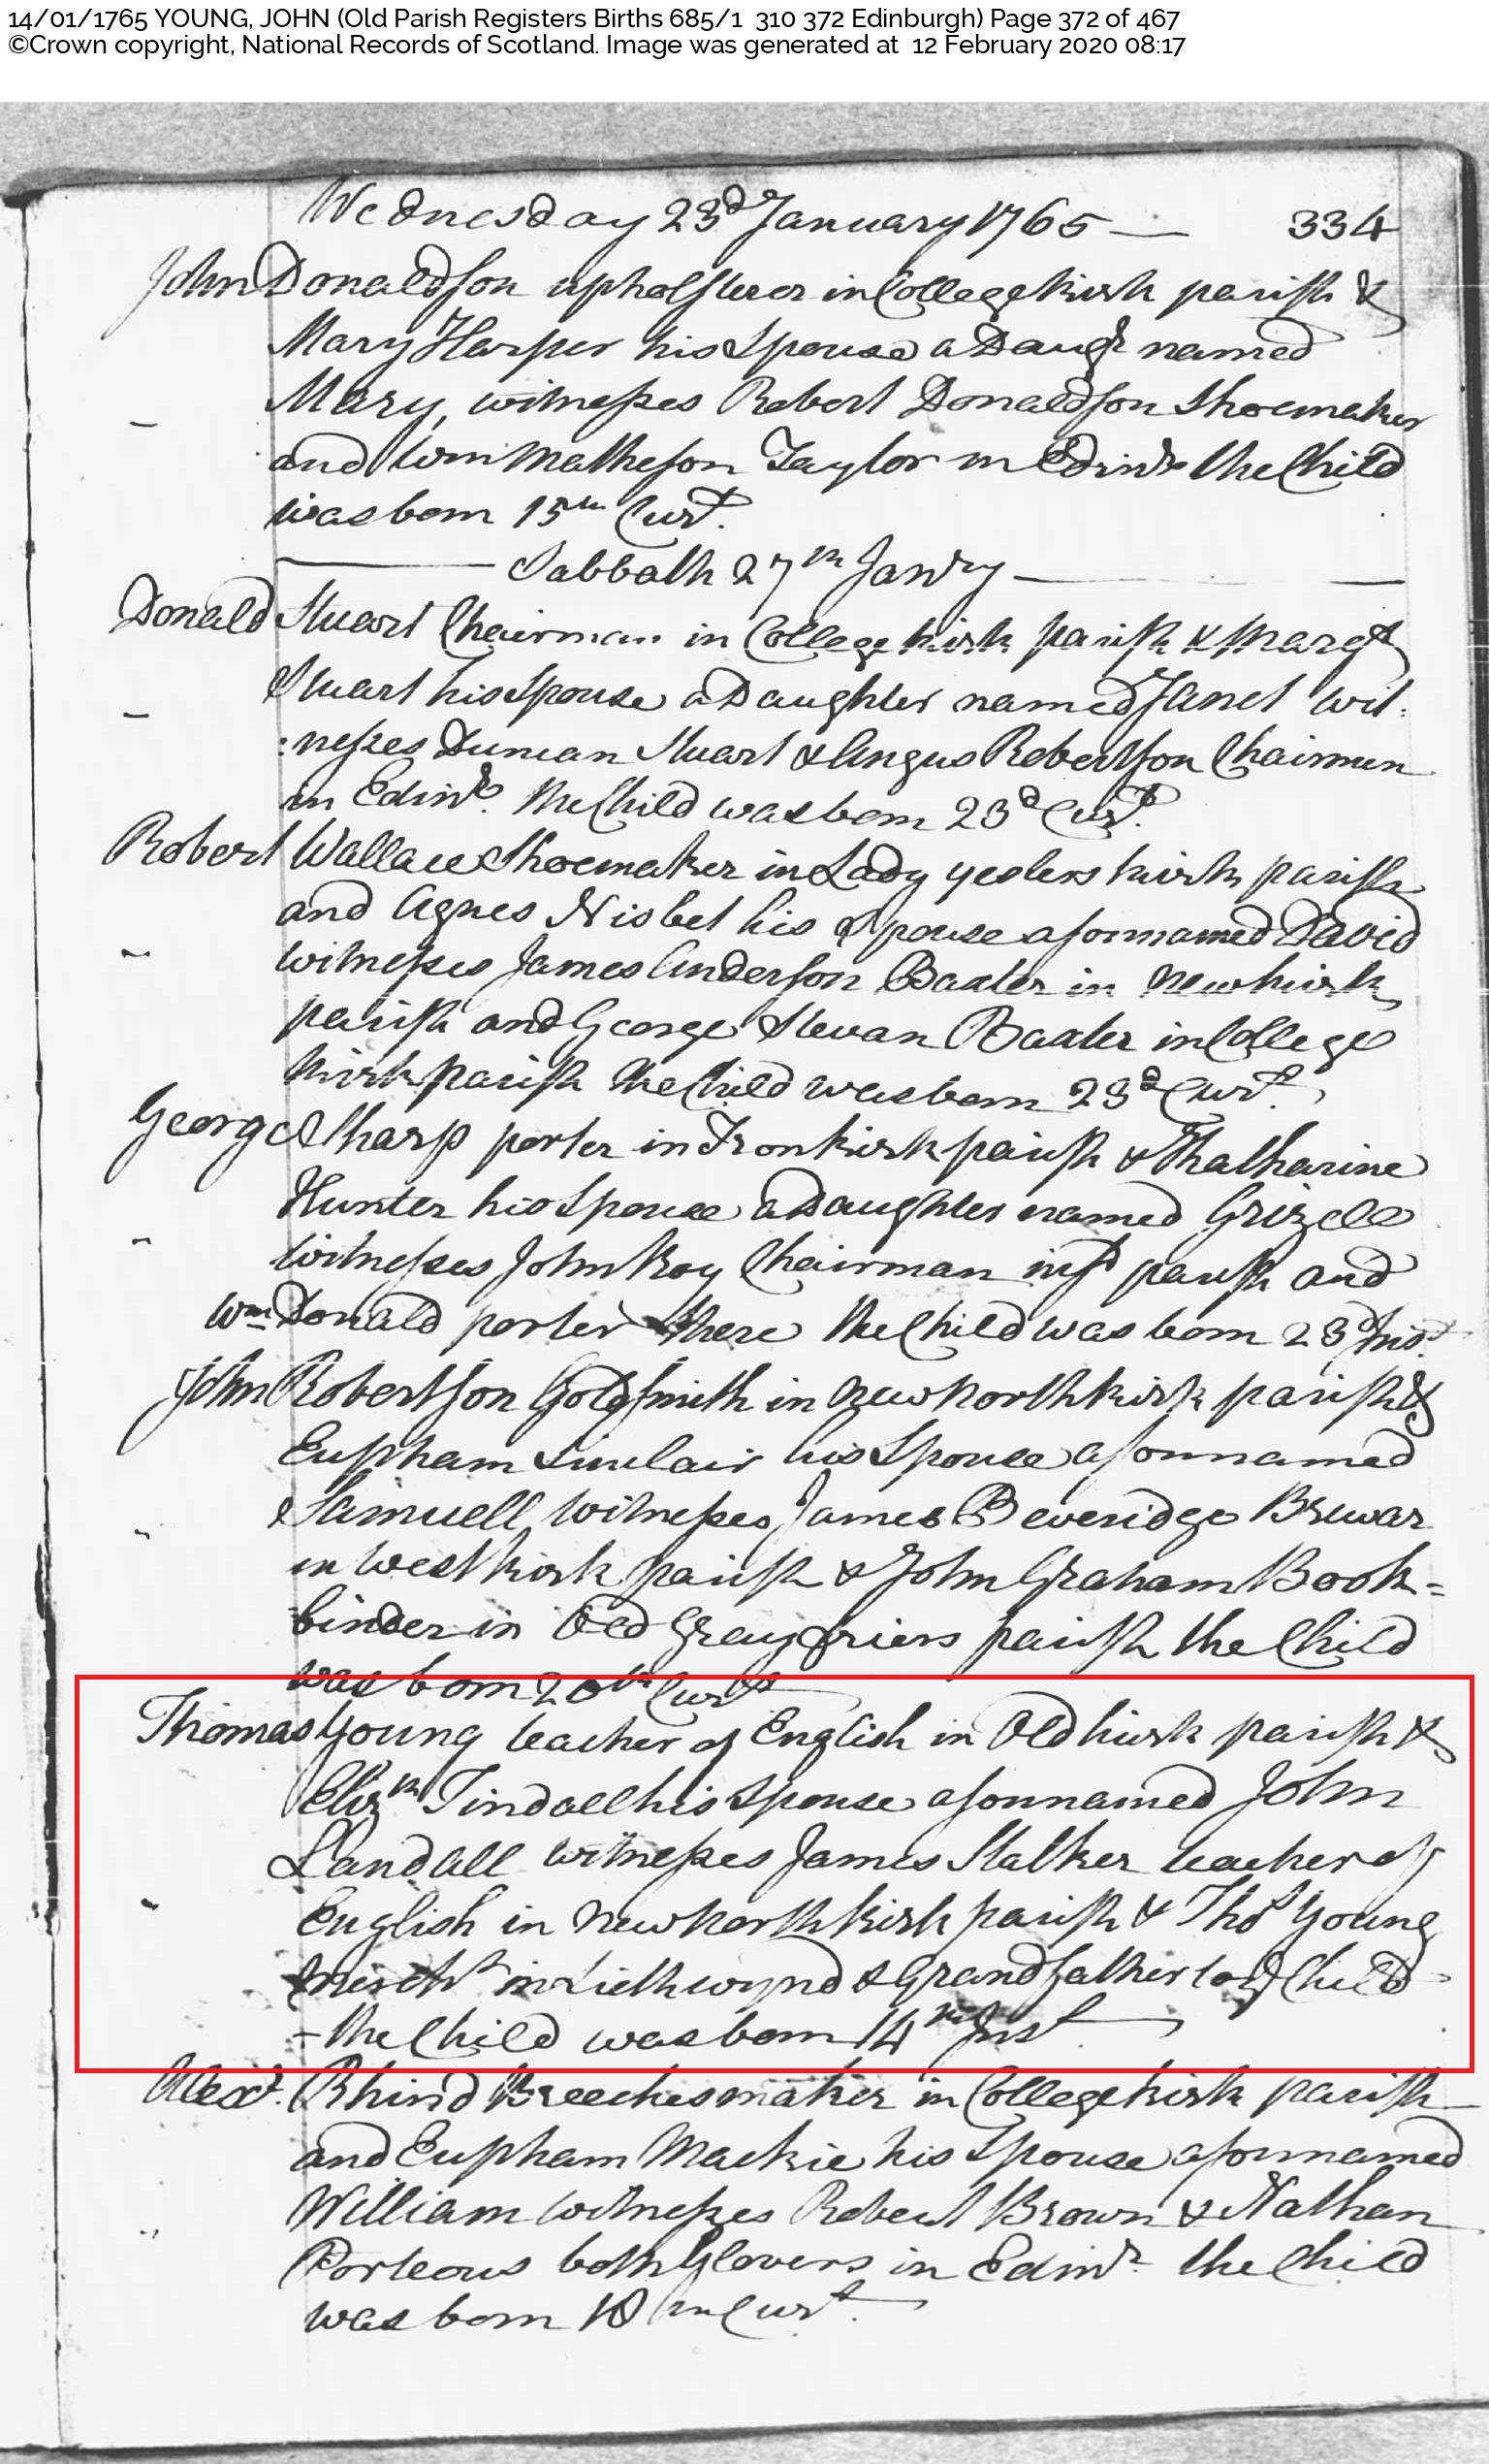 14/01/1765 YOUNG, JOHN (Old Parish Registers Births 685/1 310 372 Edinburgh) Page 372 of 467
©Crown copyright, National Records of Scotland. Image was generated at 12 February 2020 08:17
Wednesday 23d January 1765 — 334
John Donaldson upholsterer in College kirk parish &
Mary Harper his Spouse a Daugr named
Mary, witnesses Robert Donaldson Shoemaker
and Wm Matheson Taylor in Edinr the Child
was born 15th Curt.
Sabbath 27th Janry
Donald Stuart Chairman in College kirk parish & Margt
Stuart his Spouse a Daughter named Janet wit:
:nesses Duncan Stuart & Angus Robertson Chairmen
in Edinr. the Child was born 23d Curt.
Robert Wallace Shoemaker in Lady yesters kirk parish
and Agnes Nisbet his Spouse a son named David
witnesses James Anderson Baxter in New kirk
parish and George Stevan Baxter in College
kirk parish the Child was born 23d Curt.
George Sharp porter in Tron kirk parish & Khatharine
Hunter his Spouse a Daughter named Grizell
witnesses John Roy Chairman in sd parish and
Wm Donald porter there the Child was born 23d Inst.
John Robertson Goldsmith in New north kirk parish &
Eupham Sinclair his Spouse a son named
Samuell witnesses James Beveridge Brewar
in West kirk parish & John Graham Book=
binder in Old Grayfriers parish the Child
was born 20th Curt
Thomas Young teacher of English in Old kirk parish &
Elizth Tindall his Spouse a son named John
Landall witnesses James Stalker teacher of
English in New north kirk parish & Thos Young
Mercht in Lieth wynd & Grandfather to ye Child
- the Child was born 14th Inst
Alexr. Rhind Breeches maker in College kirk parish
and Eupham Mackie his Spouse a son named
William witnesses Robert Brown & Nathan
Porteous both Glovers in Edinr. the Child
was born 18th Curt.